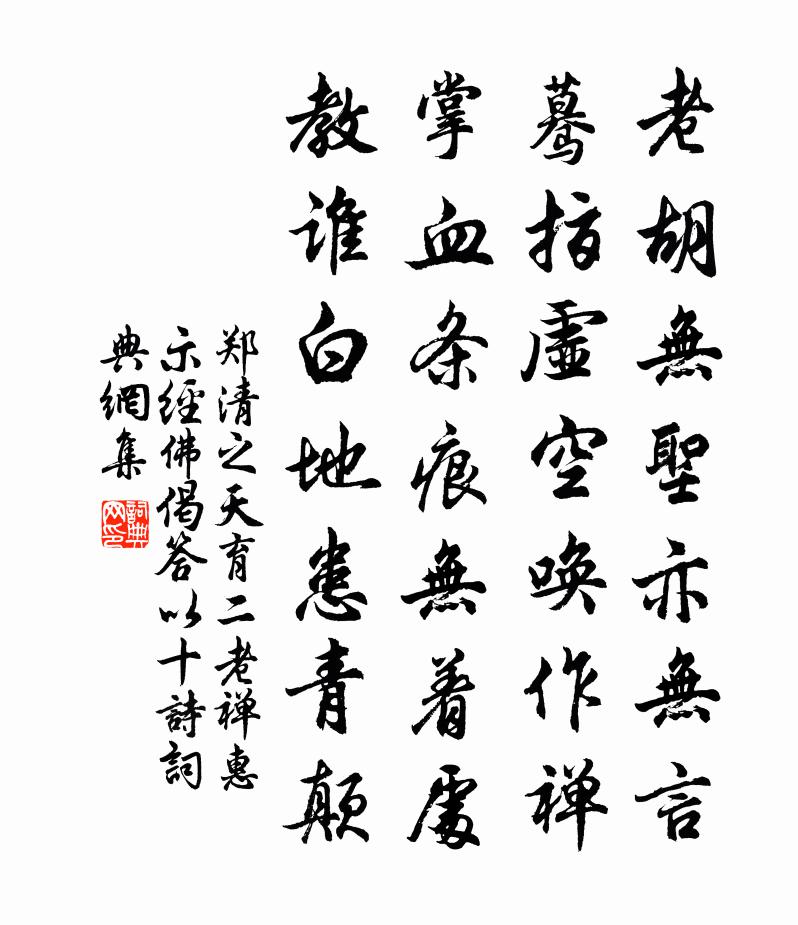 老胡無聖亦無言
驀指虛空喚作禅
掌血条痕無着處
教誰白地患青顛
郑清之天育二老禅惠
示經佛偈答以十詩詞
典網集
詞典网印